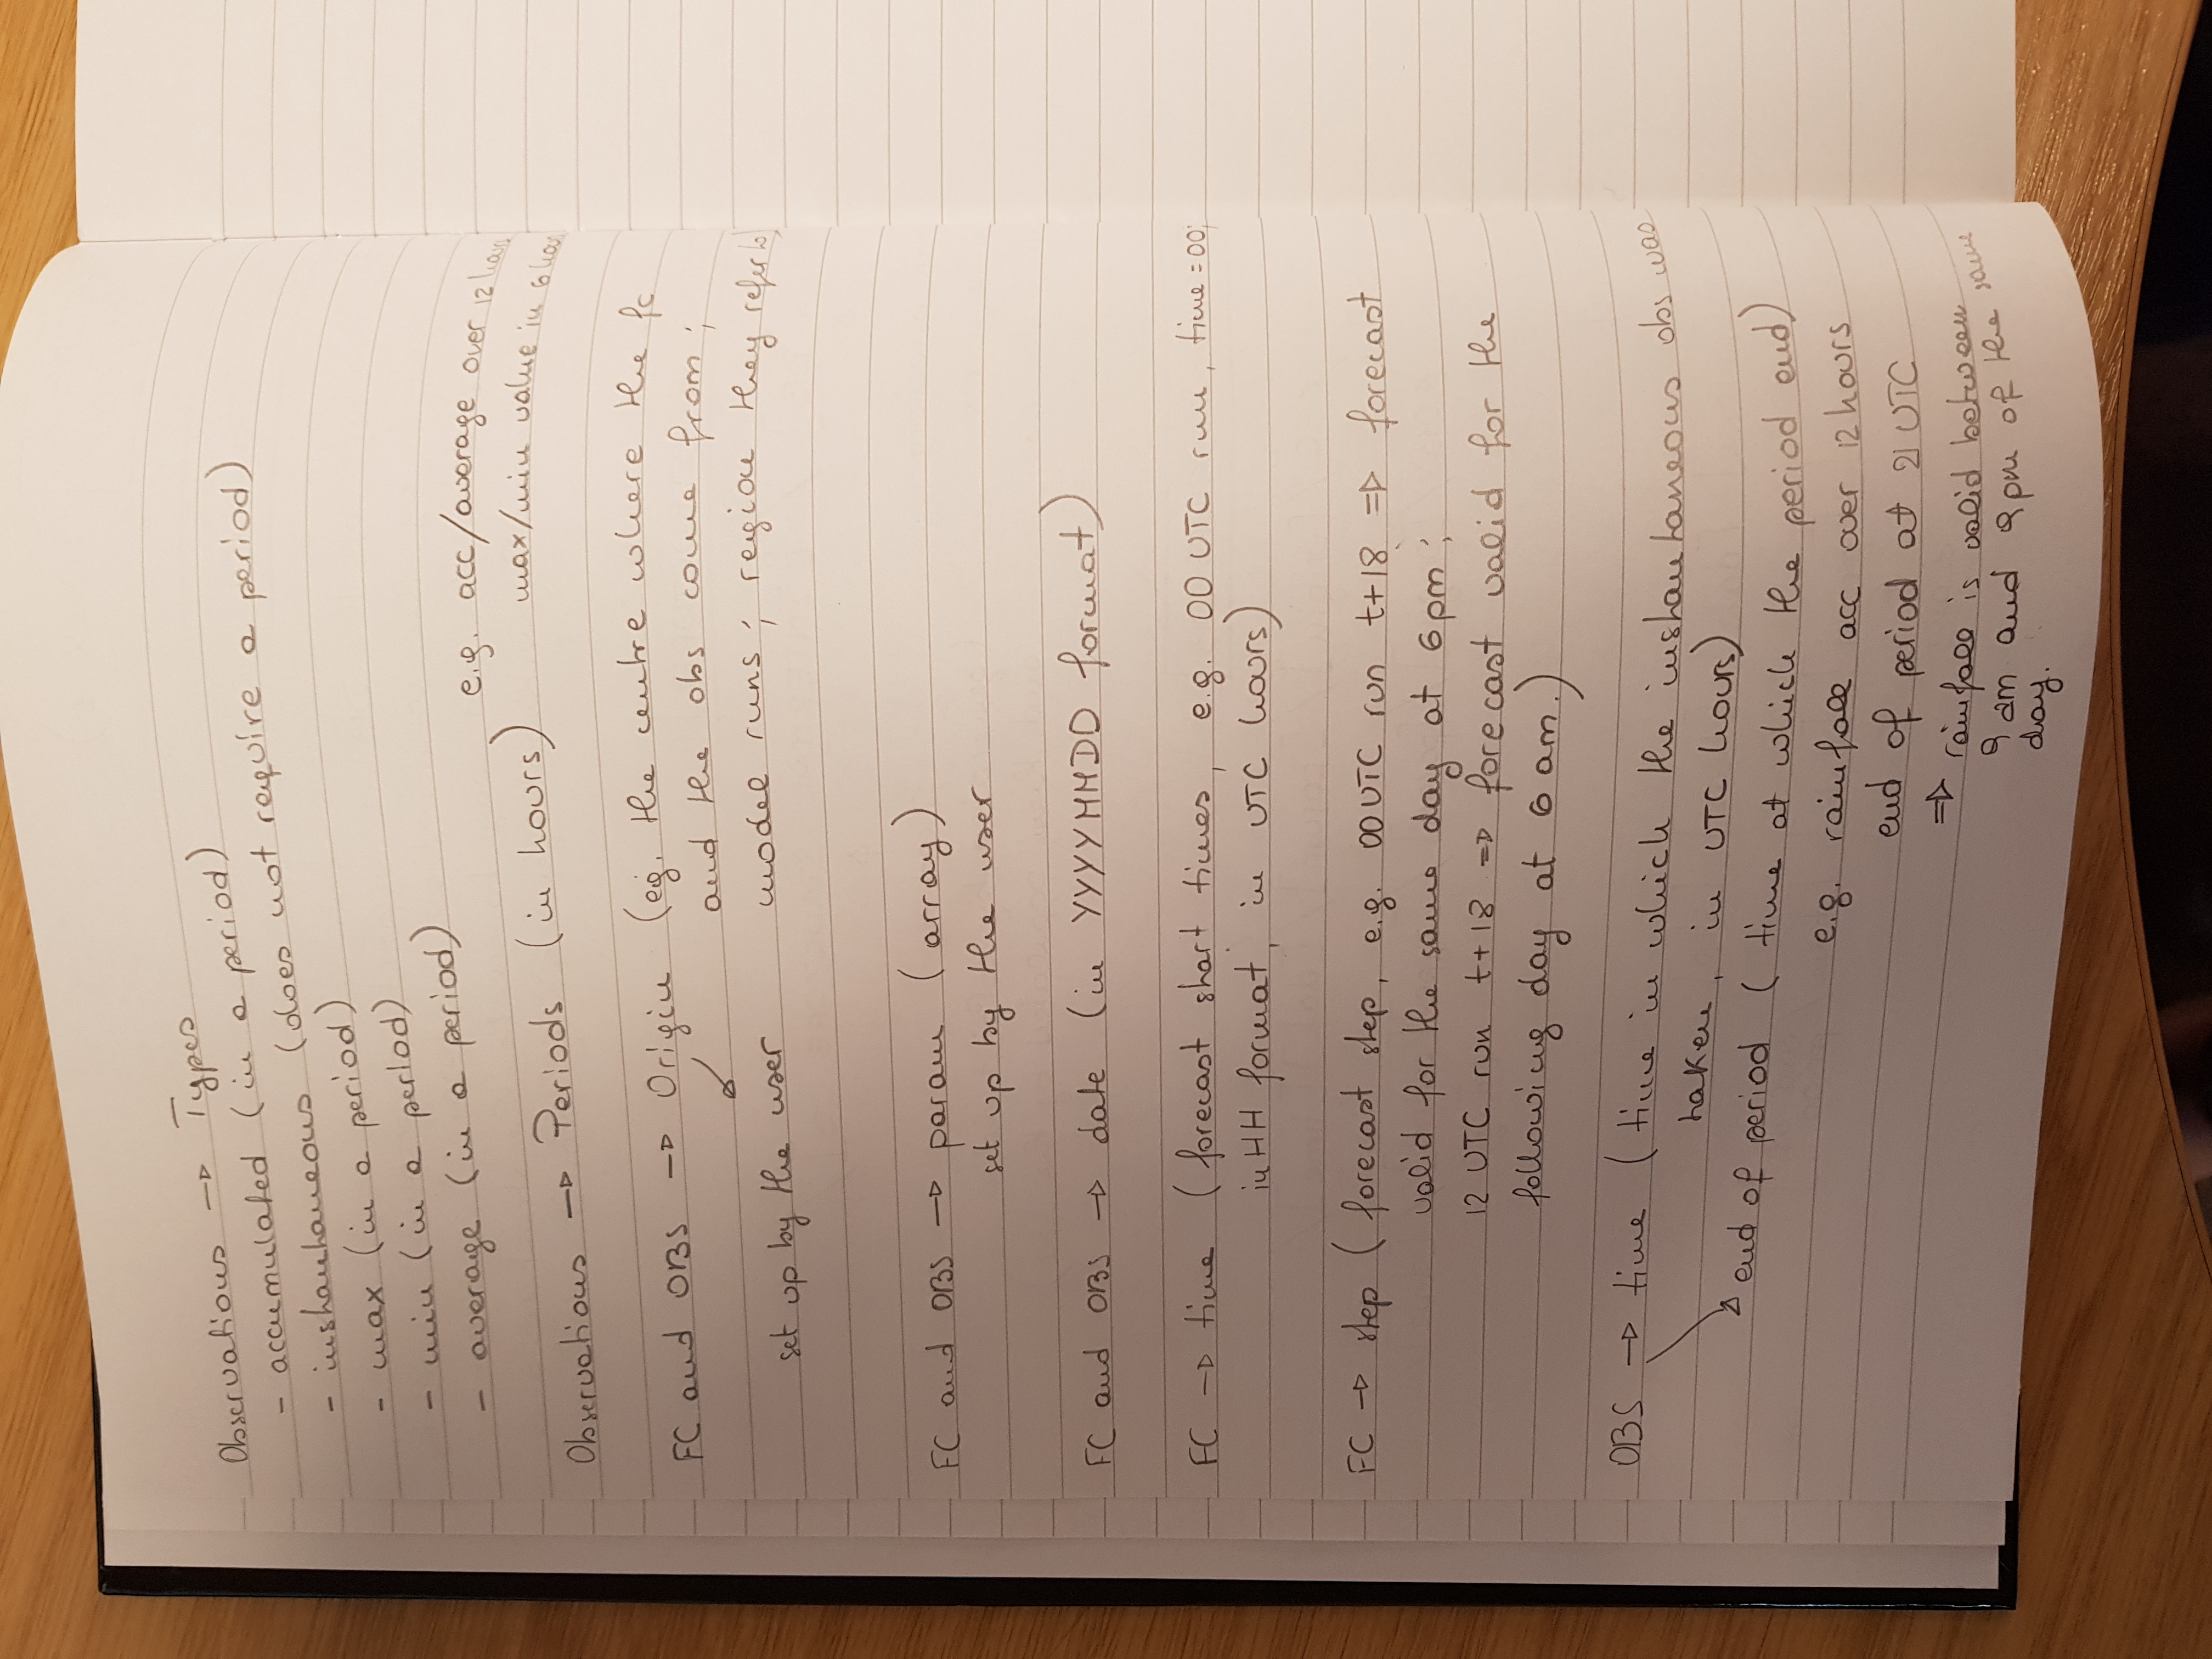 Observations -> Types
- accumulated (in a period)
- instantaneous (does not require a period)
- max (in a period)
- min (in a period)
- average (in a period)
e.g. acc/average over 12 hours
Observations -> Periods (in hours) max/min value in 6 hours
FC and OBS -> Origin (eg. the centre where the fc
and the obs come from;
set up by the user model runs; region they refer to)
FC and OBS -> param (array)
set up by the user
FC and OBS -> date (in YYYYMMDD format)
FC -> time (forecast start times, e.g. 00 UTC run, time = 00;
in HH format, in UTC hours)
FC -> step (forecast step, e.g. 00 UTC run t+18 => forecast
valid for the same day at 6 pm;
12 UTC run t+18 => forecast valid for the
following day at 6 am.)
OBS -> time (time in which the instantaneous obs was
taken, in UTC hours)
-> end of period (time at which the period end)
e.g. rainfall acc over 12 hours
end of period at 21 UTC
=> rainfall is valid between
9 am and 9 pm of the same
day.